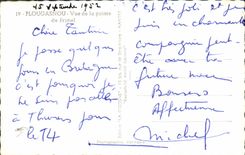 15 Septembre 1952
19 - PLOUGASNOU - Vue de la pointe
de Primel
Chère Tantine
Je passe quelques
jours en Bretagne
c'est pourquoi je
ne suis pas
à Thiviers pour
le 14
c'est très joli et je
suis en charmante
compagnie
être avec
future
Baisers
Affectueux
Michel